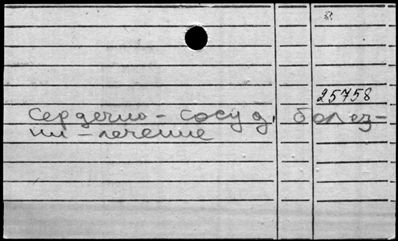 25758
Сердечно-сосуд. болез-
ни - лечение